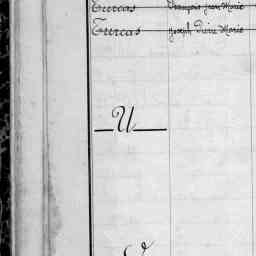 Turcas François Jean Marie
Turcas Joseph Pierre Marie
U